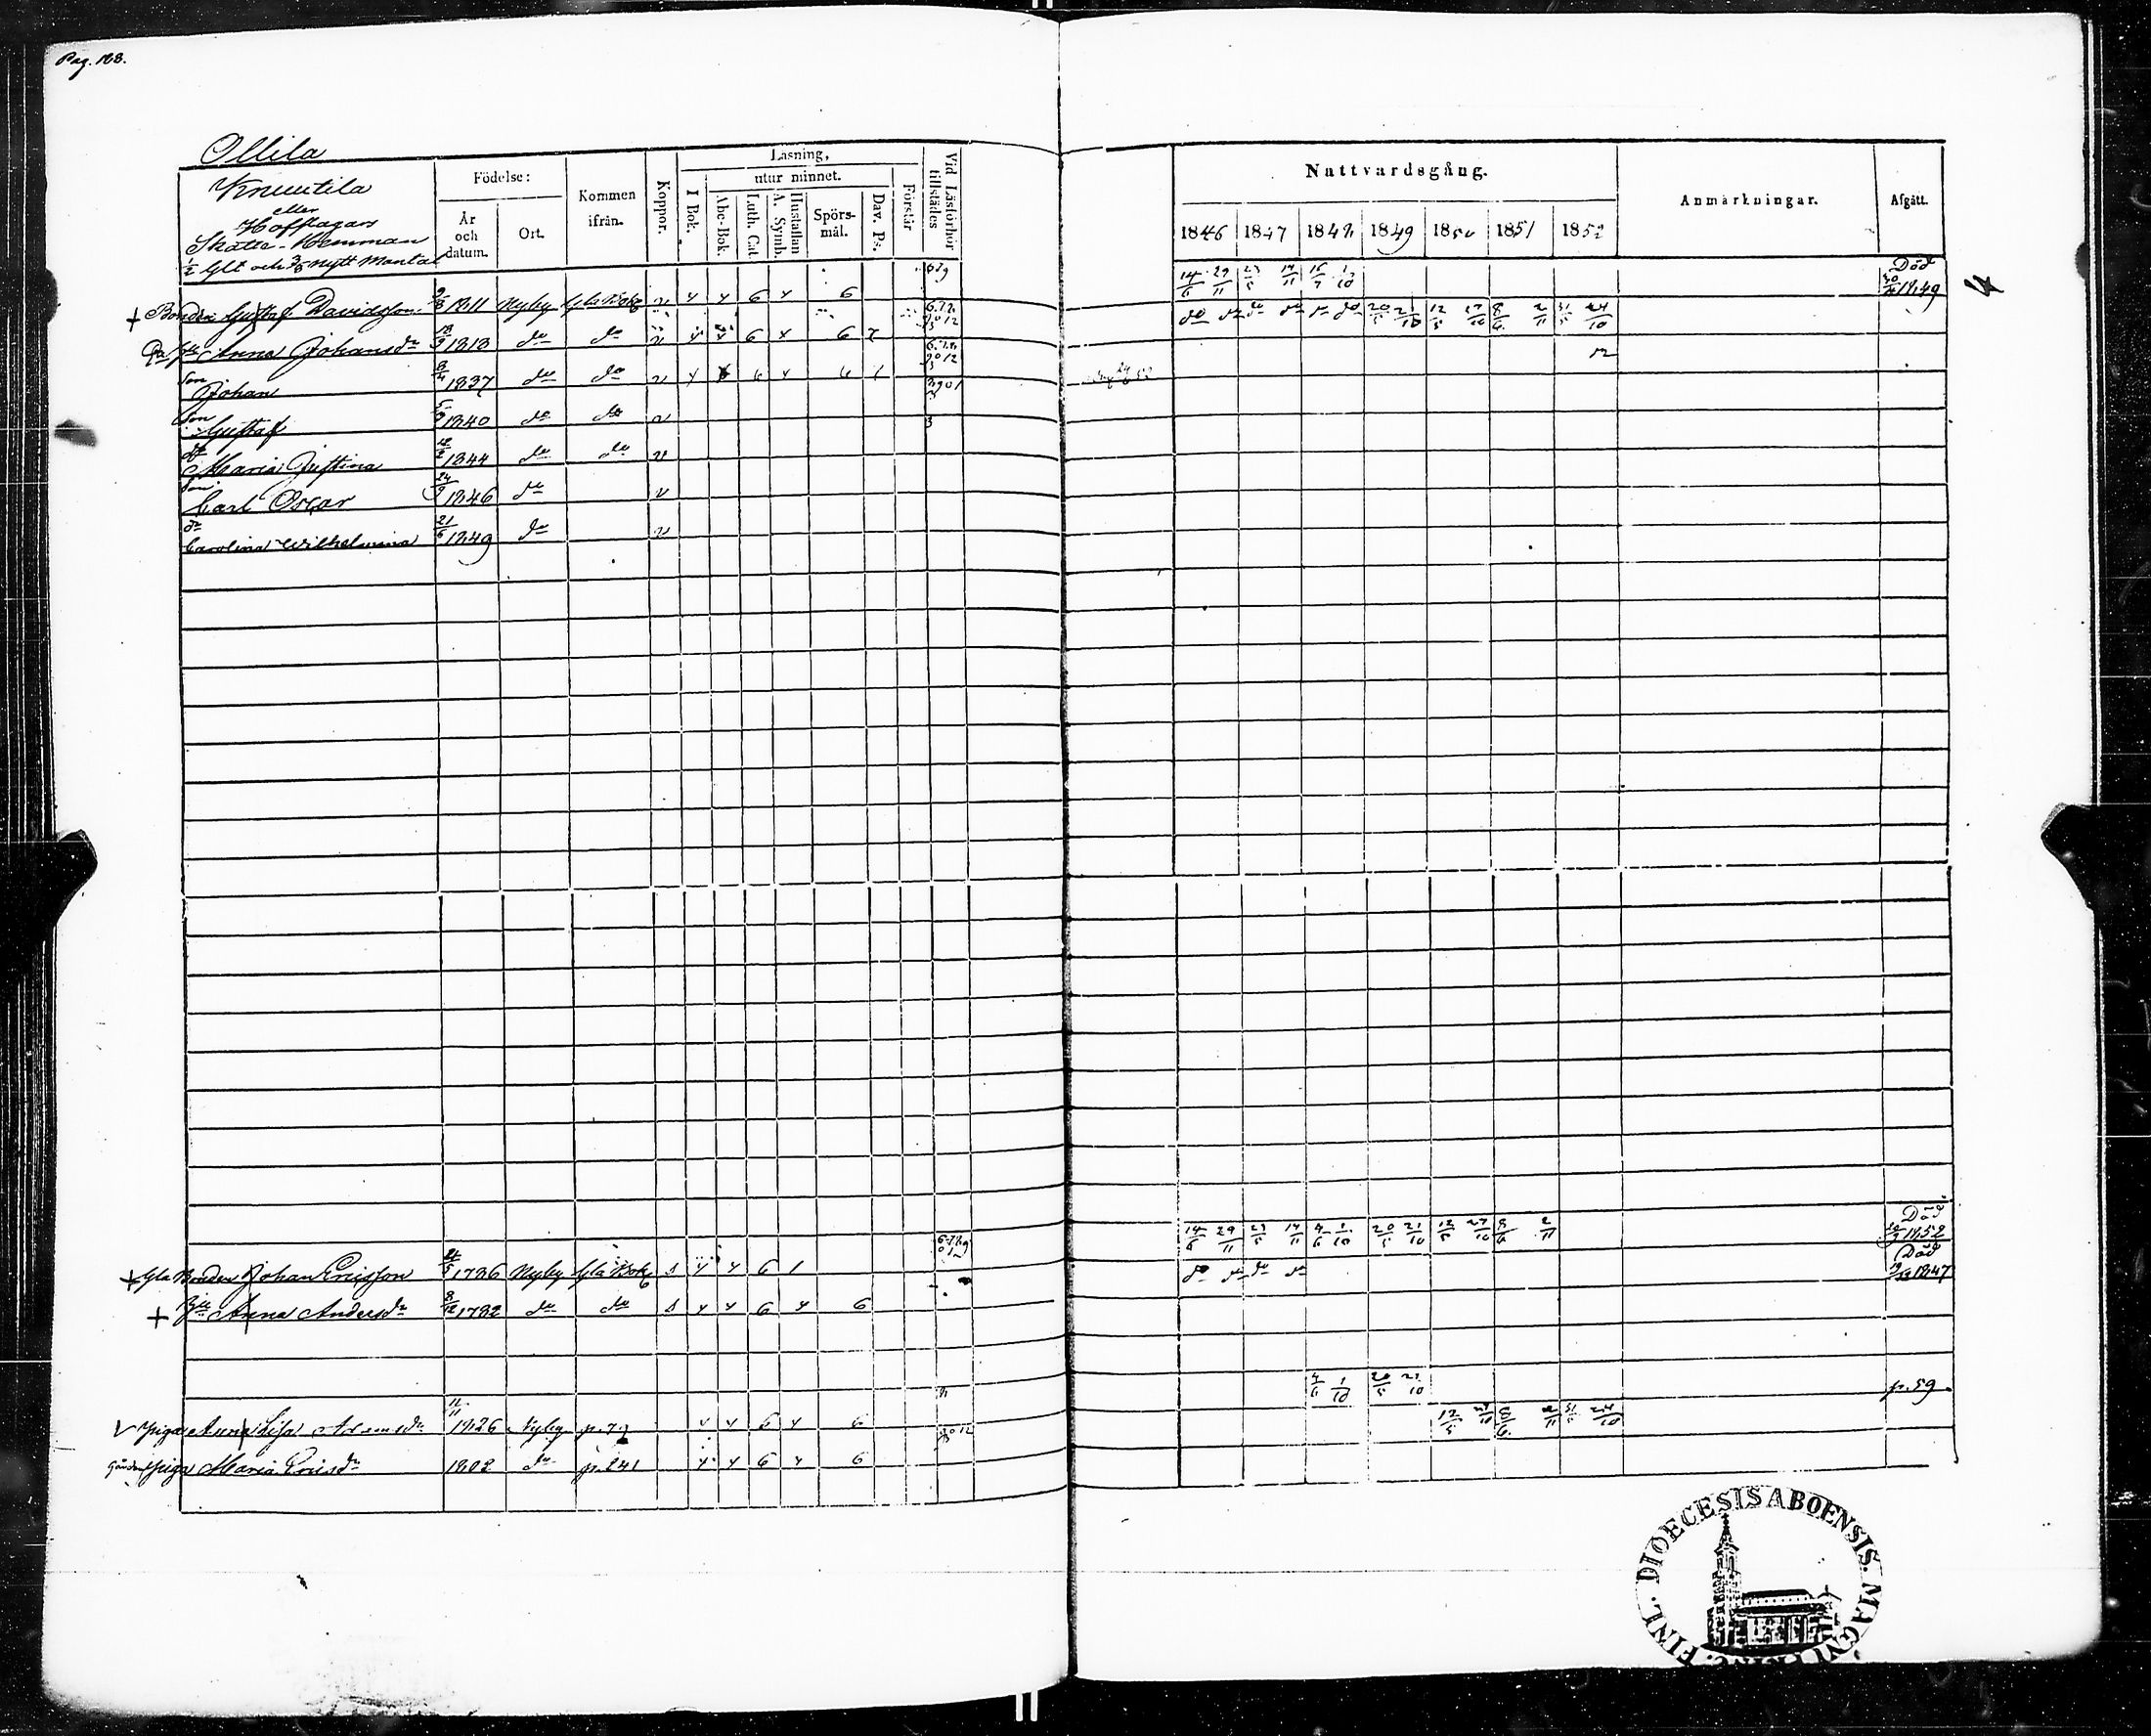 Pag. 168.
Ollila
Knuutila
eller
Hofslagars
Skatte-Hemman
1/2 Glt och 3/8 nytt Mantal
Födelse:
År och datum.
Ort.
Kommen ifrån.
Koppor.
Läsning,
I Bok.
utur minnet.
Abc-Bok.
Luth. Cat.
A. Symb.
Hustaflan
Spörs-mål.
Dav. Ps.
Förstår
Vid Läsförhör tillstädes
Nattvardsgång.
1846 1847 1848 1849 1850 1851 1852
Anmärkningar.
Afgått.
+ Bonden Gustaf Davidsson 1811 Nyby Gla Boke v 4 4 6 4 6 14/6 29/11 23/5 14/11 1/10 Död 1849
Anna Johansdr 1818 do do v 4 4 6 4 6 20/5 21/10 12/5 27/10 8/6 2/11 31/5 24/10
Son Johan 1837 do do v
Son Gustaf 1840 do do v
dr Maria Justina 1844 do do v
Son Carl Oscar 24/9 1846 do v
dr Carolina Wilhelmina 21/6 1849 do v
+ Gla Bonden Johan Ericsson 1786 Nyby Gla Boke s 4 4 6 1 14/6 29/11 23/5 14/11 4/6 1/10 20/5 21/10 12/5 27/10 8/6 2/11 Död 1852
+ Anna Andersdr 8/12 1782 do do s 4 4 6 4 6 do do do do Död 1847
Piga Anna Lisa 1826 Nyby 4 4 6 4 6 4/6 1/10 20/5 21/10 p. 59
piga Maria Ericsdr 1802 do p. 241 4 4 6 4 6 12/5 27/10 8/6 2/11 31/5 24/10
4
FINL. DIOECESIS ABOENSIS. MAGNI PRINC.